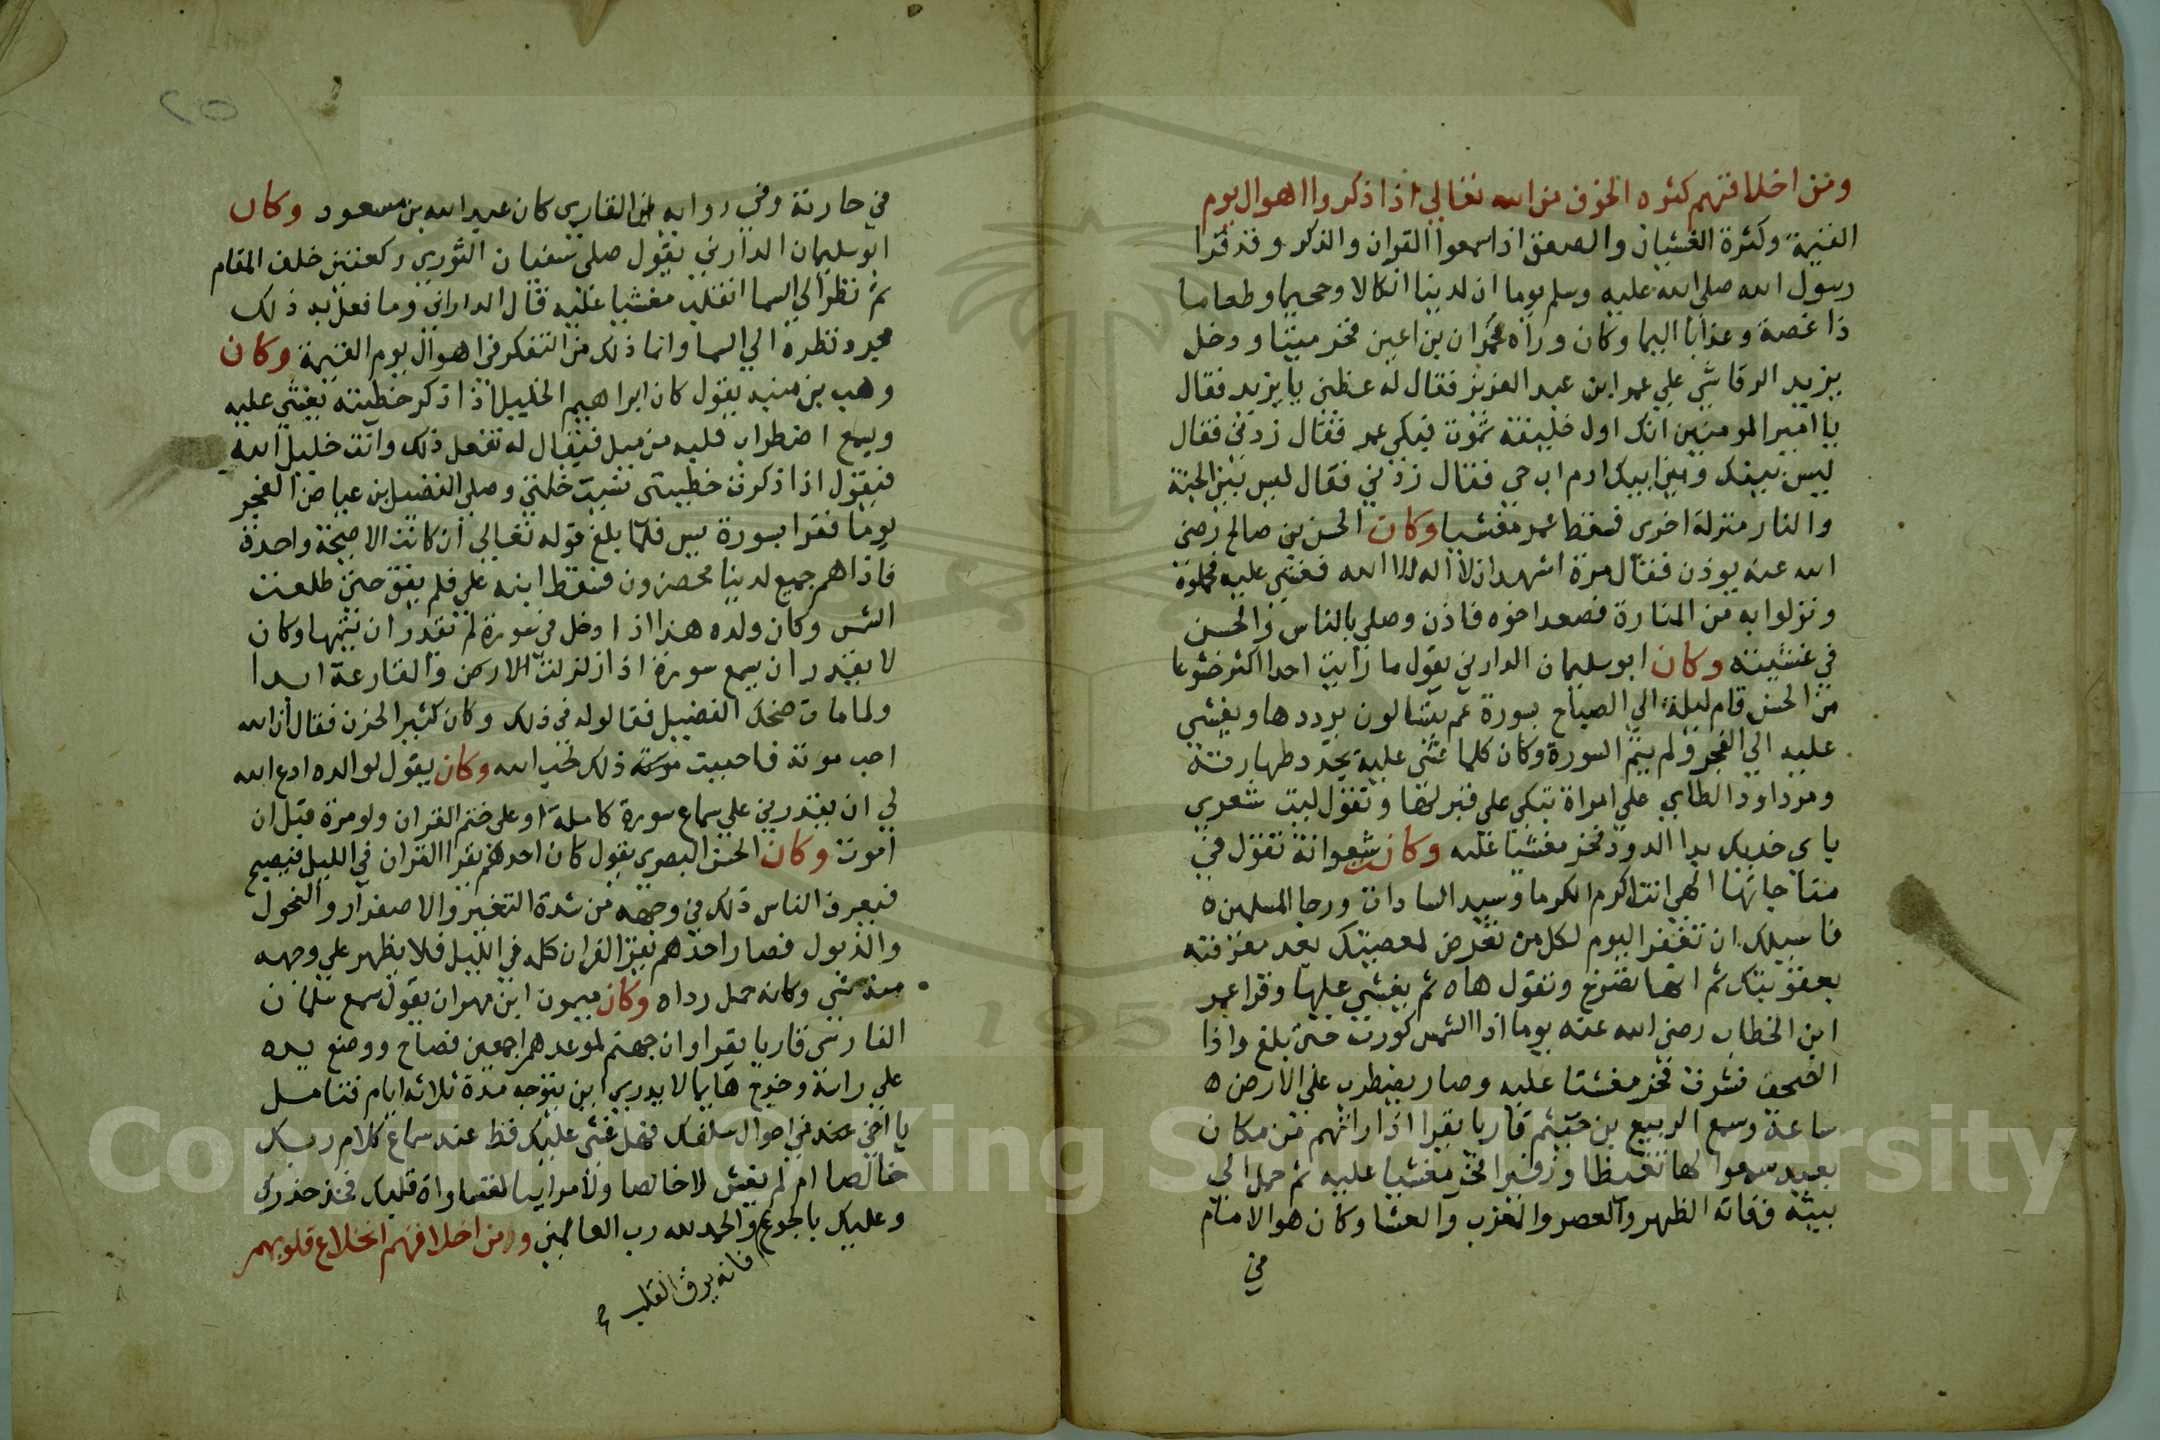 ومن اخلاقهم كثره الخوف من الله تعالي اذا ذكروا اهوال يوم
القيمة وكثرة الغشيان والصعق اذا سمعوا القران والذكر وقد قرا
رسول الله صلي الله عليه وسلم يوما ان لدينا انكالا وجحيما وطعاما
ذا غصة وعذابا اليما وكان وراه حمران بن اعين فخر ميتا ودخل
يزيد الرقاشي علي عمر ابن عبد العزيز فقال له عظني يا يزيد فقال
يا امير المومنين انك اول خليفة تموت فبكي عمر فقال زدني فقال
ليس بينك وبين ابيك ادم اب حي فقال زدني فقال ليس بين الجنة
والنار منزلة اخري فسقط عمر مغشيا وكان الحسن بن صالح رضي
الله عنه يوذن فقال مرة اشهد ان لا اله الا الله فغشي عليه فحملوه
ونزلوا به من المنارة فصعد اخوه فاذن وصلي بالناس والحسن
في غشيته وكان ابو سليمان الداراني يقول ما رايت احدا اكثر خشوعا
من الحسن قام ليلة الي الصباح بسورة عم يتسالون يرددها ويغشي
عليه الي الفجر ولم يتم السورة وكان كلما غشي عليه يجدد طهارته
ومر داود الطاي علي امراة تبكي علي قبر لها وتقول ليت شعري
باي خديك بدا الدود فخر مغشيا عليه وكان شعوانة تقول في
مناجاتها الهي انت اكرم الكرما وسيد السادات ورجا المسلمين ه
فاسيلك ان تغفر اليوم لكل من تعرض لمعصيتك بعد معرفته
بعقوبتك ثم انها تصرخ وتقول هاه ثم يغشي عليها وقرا عمر
ابن الخطاب رضي الله عنه يوما اذا الشمس كورت حتي بلغ واذا
الصحف نشرت فخر مغشيا عليه وصار يضطرب علي الارض ه
ساعة وسمع الربيع بن خيثم قاريا يقرا اذا راتهم من مكان
بعيد سمعوا لها تغيظا وزفيرا فخر مغشيا عليه ثم حمل الي
بيته ففاته الظهر والعصر والمغرب والعشا وكان هو الامام
في
في حارته وفي روايه ان القاري كان عبد الله بن مسعود وكان
ابو سليمان الداراني يقول صلي سفيان الثوري ركعتين خلف المقام
ثم نظر الي السما انقلب مغشيا عليه قال الداراني وما فعل به ذلك
مجرد نظره الي السما وانما ذلك من التفكر في اهوال يوم القيمة وكان
وهب بن منبه يقول كان ابراهيم الخليل اذا تذكر خطيته يغشي عليه
ويسمع اضطراب قلبه من ميل فيقال له تفعل ذلك وانت خليل الله
فيقول اذا ذكرت خطيتي نسيت خلتي وصلي الفضيل بن عياض الفجر
يوما فقرا بسورة يس فلما بلغ قوله تعالي ان كانت الا صيحة واحدة
فاذا هم جميع لدينا محضرون فسقط ابنه علي فلم يفق حتي طلعت
الشمس وكان ولده هذا اذا دخل في سورة لم يقدر ان يتمها وكان
لا يقدر ان يسمع سورة اذا زلزلت الارض والقارعة ابدا
ولما مات ضحك الفضيل فقالوا له في ذلك وكان كثير الحزن فقال ان الله
احب موته فاحببت موته ذلك لحب الله وكان يقول لوالده ادع الله
لي ان يقدرني علي سماع سورة كاملة او علي ختم القران ولو مرة قبل ان
اموت وكان الحسن البصري يقول كان احدهم يقرا القران في الليل فيصبح
فيعرف الناس ذلك في وجهه من شدة التغير والاصفرار والنحول
والذبول فصار احدهم يقرا القران كله في الليل فلا يظهر علي وجهه
منه شي وكانه حمل رداه وكان ميمون ابن مهران يقول سمع سلمان
الفارسي قاريا يقرا وان جهنم لموعدهم اجمعين فصاح ووضع يده
علي راسه وخرج هايما لا يدري اين يتوجه مدة ثلاثه ايام فتامل
يا اخي في احوال سلفك فهل غشي عليك قط عند سماع كلام ربك
خالصا ام لم يغش لا خالصا ولا مراييا لقساوة قلبك فخذ حذرك
وعليك بالجوع والحمد لله رب العالمين ومن اخلاقهم انخلاع قلوبهم
فانه يرق القلب